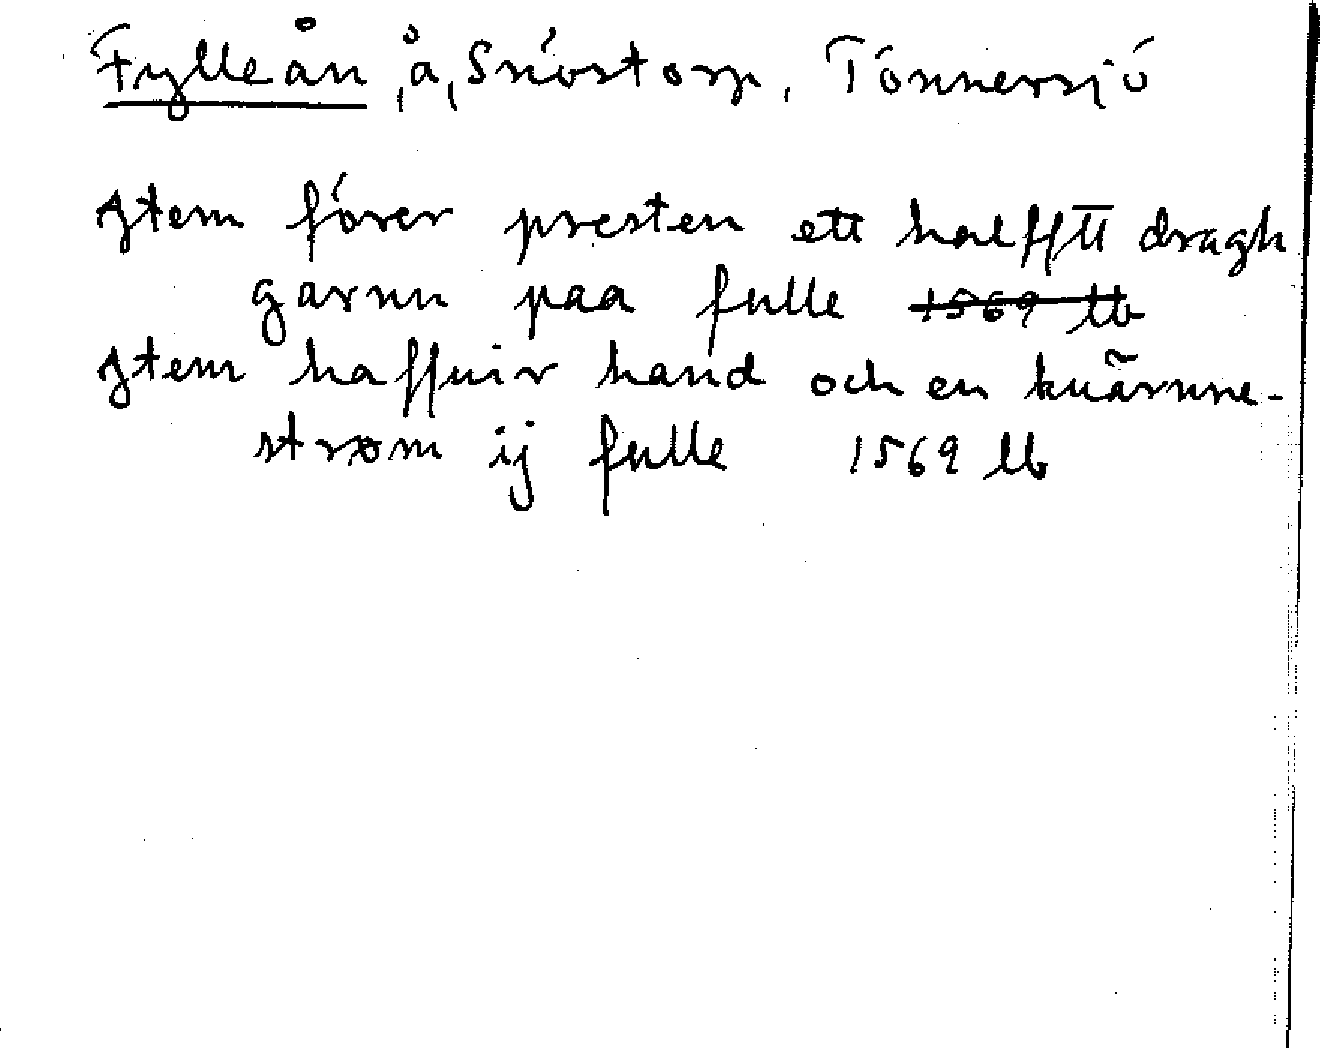 Fylleån, å, Snöstorp, Tönnersjö
Jtem förer presten ett halfftt dragh
garnn paa fulle 1569 lb
Jtem haffuir hand och en kuärnne-
strøm ij fulle 1569 lb